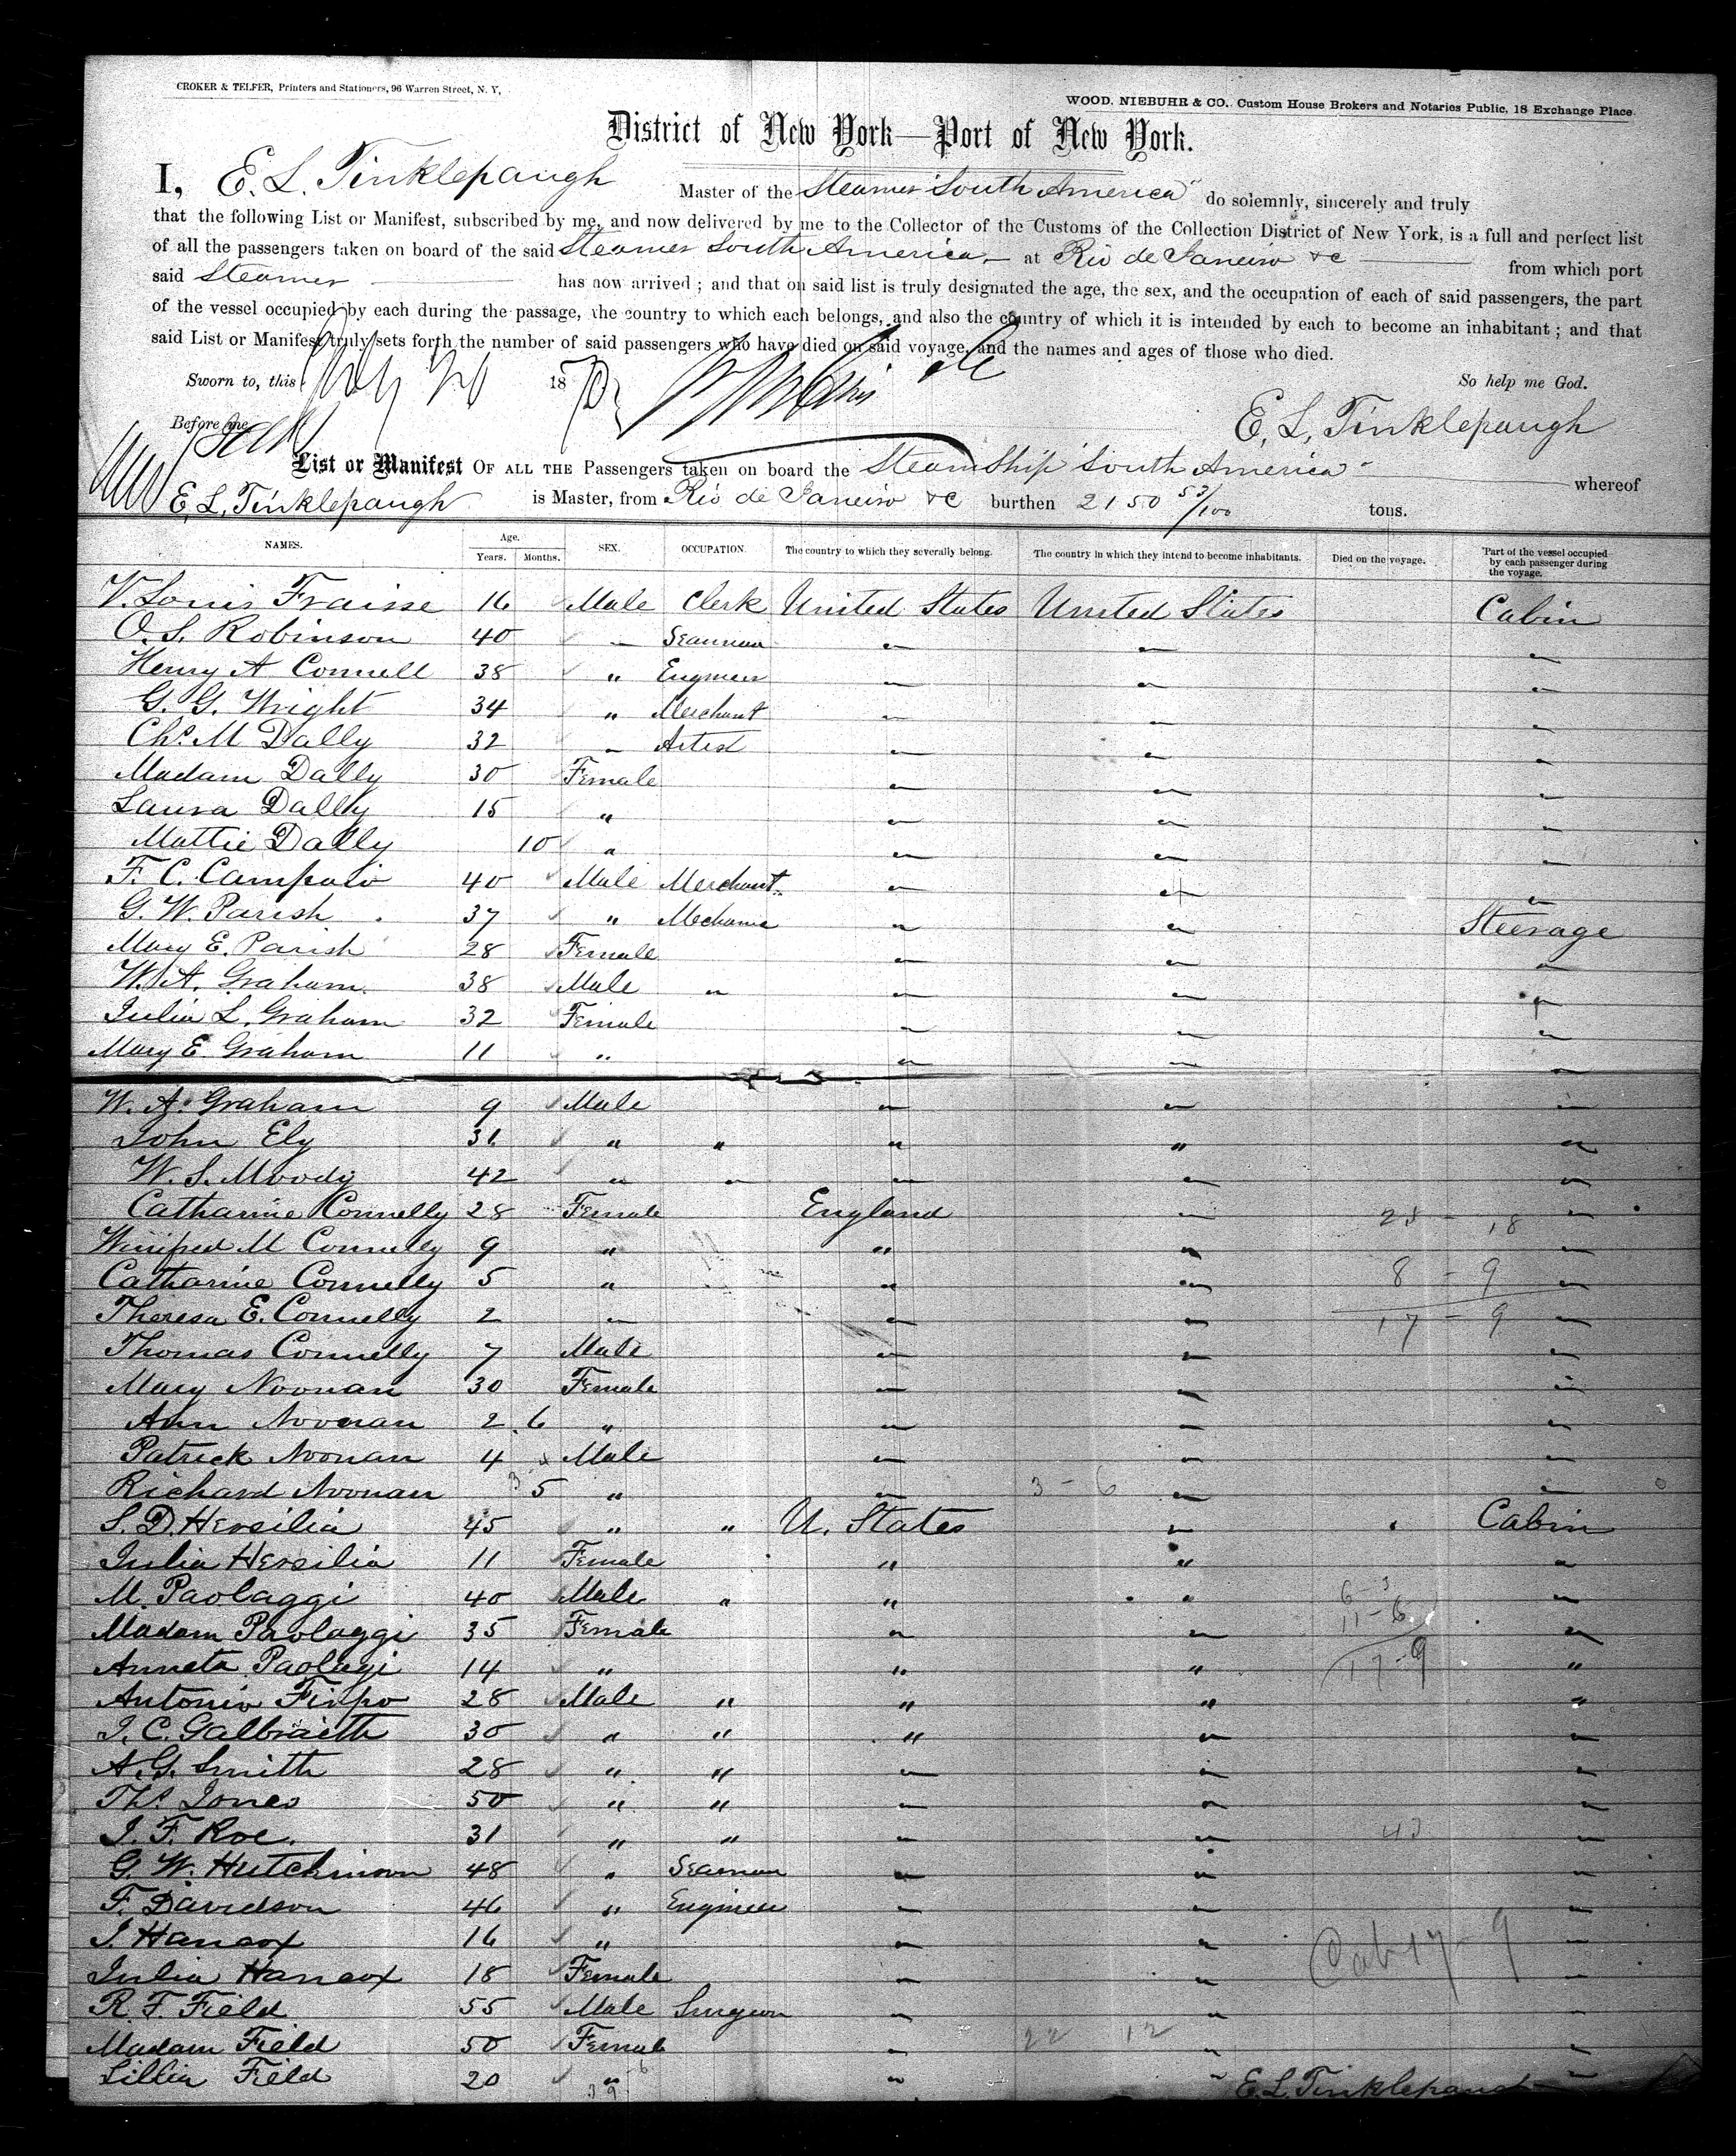 CROKER & TELFER, Printers and Stationers, 96 Warren Street, N. Y,
WOOD, NIEBUHR & CO., Custom House Brokers and Notaries Public, 18 Exchange Place.
District of New York—Port of New York.
I, E. L. Tinklepaugh Master of the Steamer "South America" do solemnly, sincerely and truly
that the following List or Manifest, subscribed by me, and now delivered by me to the Collector of the Customs of the Collection District of New York, is a full and perfect list
of all the passengers taken on board of the said Steamer South America at Rio de Janeiro &c from which port
said Steamer has now arrived; and that on said list is truly designated the age, the sex, and the occupation of each of said passengers, the part
of the vessel occupied by each during the passage, the country to which each belongs, and also the country of which it is intended by each to become an inhabitant; and that
said List or Manifest truly sets forth the number of said passengers who have died on said voyage, and the names and ages of those who died.
Sworn to, this 18 So help me God.
Before me E. L. Tinklepaugh
List or Manifest OF ALL THE Passengers taken on board the SteamShip South America whereof
E. L. Tinklepaugh is Master, from Rio de Janeiro &c burthen 2150 53/100 tons.
NAMES. Age. Years. Months. SEX. OCCUPATION. The country to which they severally belong. The country in which they intend to become inhabitants. Died on the voyage. Part of the vessel occupied by each passenger during the voyage.
V. Louis Fraisse 16 Male Clerk United States United States Cabin
O. S. Robinson 40 " Seaman " " "
Henry A Connell 38 " Engineer " " "
G. G. Wright 34 " Merchant " " "
Chs. M Dally 32 " Artist " " "
Madam Dally 30 Female " " "
Laura Dally 15 " " " "
Mattie Dally 10 " " " "
F. C. Campaio 40 Male Merchant " " "
G. W. Parish 37 " Mechanic " " Steerage
Mary E. Parish 28 Female " " "
W. A. Graham 38 Male " " " "
Julia L. Graham 32 Female " " "
Mary E Graham 11 " " " "
W. A. Graham 9 Male " " "
John Ely 31 " " " " "
W. S. Moody 42 " " " " "
Catharine Connelly 28 Female England " "
Winifred M Connelly 9 " " " "
Catharine Connelly 5 " " " 8 - 9 "
Theresa E. Connelly 2 " " " 17 - 9 "
Thomas Connelly 7 Male " " "
Mary Noonan 30 Female " " "
Ann Noonan 2 6 " " " "
Patrick Noonan 4 Male " " "
Richard Noonan 5 " " 3 - 6 " "
S. D. Hersilia 45 " " U. States " Cabin
Julia Hersilia 11 Female " " "
M. Paolaggi 40 Male " " " 6 - 3 "
Madam Paolaggi 35 Female " " 11 - 6 "
Anneta Paolagi 14 " " " 17 - 9 "
Antonio Firpo 28 Male " " " "
J. C. Galbraith 30 " " " " "
A. G. Smith 28 " " " " "
Ths. Jones 50 " " " " "
J. F. Roe. 31 " " " " "
G. W. Hutchinson 48 " Seaman " " "
F. Davidson 46 " Engineer " " "
J. Hancox 16 " " " "
Julia Hancox 18 Female " " Cab 17 - 9 "
R. F. Field 55 Male Surgeon " " "
Madam Field 50 Female " 22 12 " "
Lillia Field 20 " " " "
E. L. Tinklepaugh